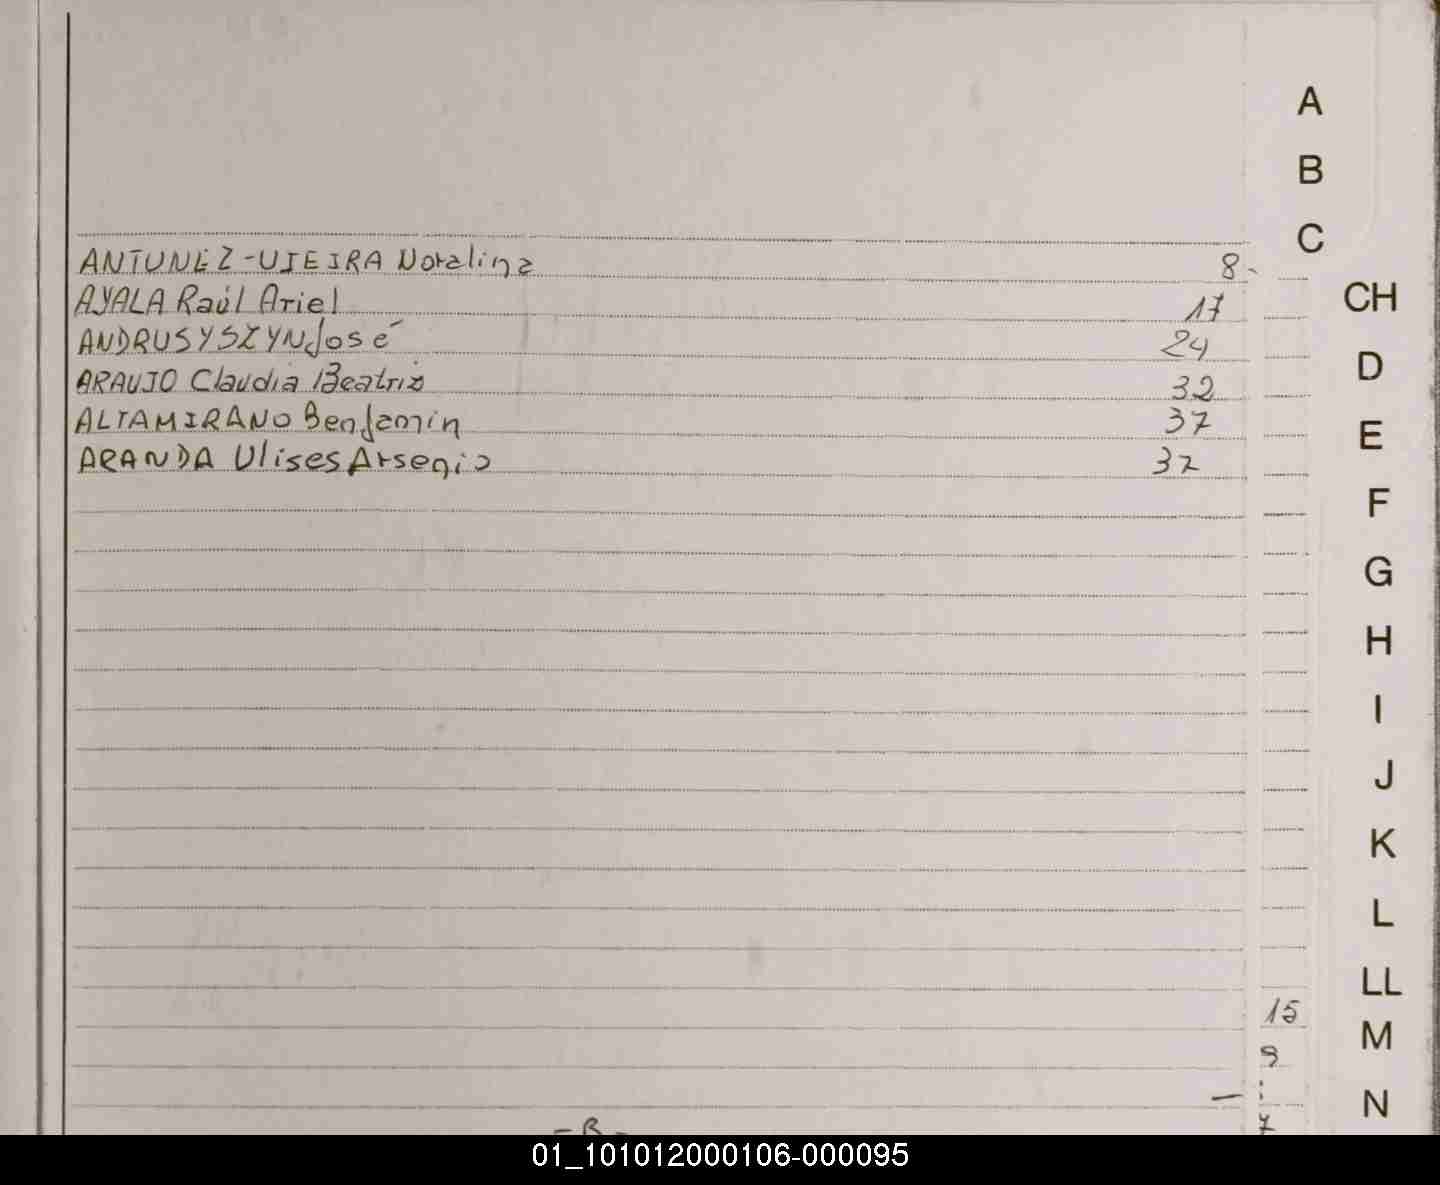 A
B
C
ANTUNEZ-VIEIRA Noralina 8-
AYALA Raúl Ariel 17
CH
ANDRUSYSZYN José 24
D
ARAUJO Claudia Beatriz 32
ALTAMIRANO Benjamin 37
E
ARANDA Ulises Arsenio 37
F
G
H
I
J
K
L
LL
15
M
9
N
7
- B -
01_101012000106-000095